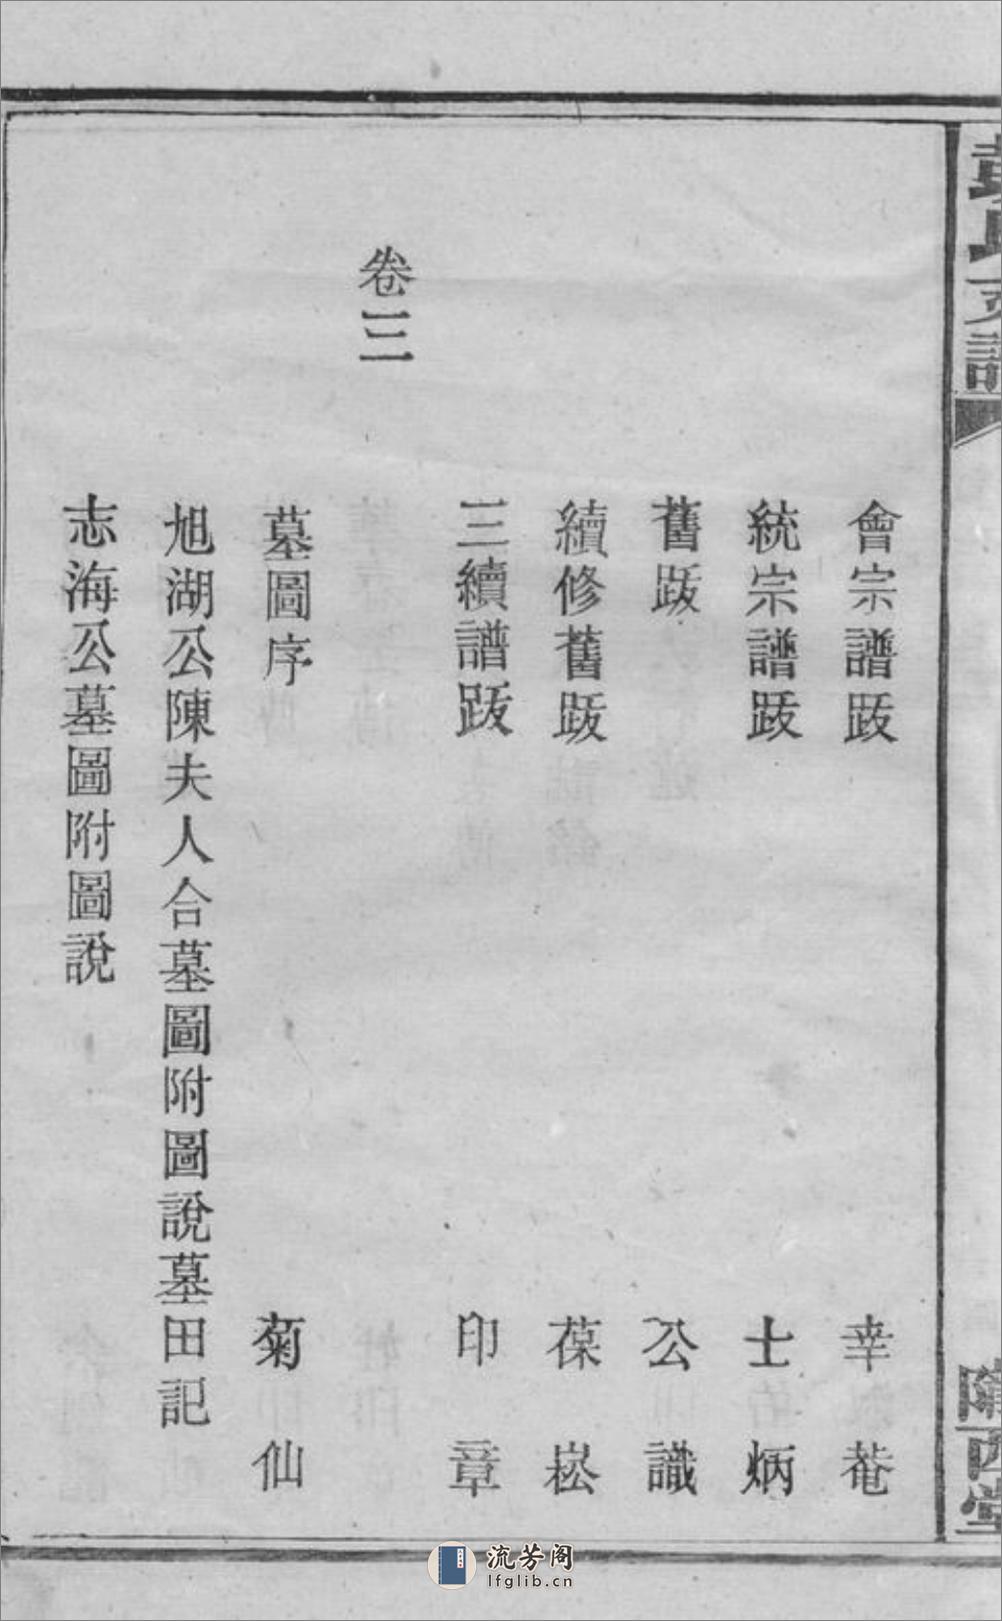 會宗譜跋 幸菴
統宗譜跋 士炳
舊跋 公識
續修舊跋 葆崧
三續譜跋 印章
卷三
墓圖序 菊仙
旭湖公陳夫人合墓圖附圖說墓田記
志海公墓圖附圖說
支譜
隴西堂
流芳阁
lfglib.cn